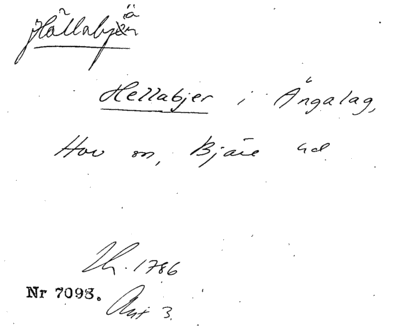 Hällabjär
Hellabjer i Ängalag,
Hov sn, Bjäre hd
Lh. 1786
Nr 7093. Avt 3.